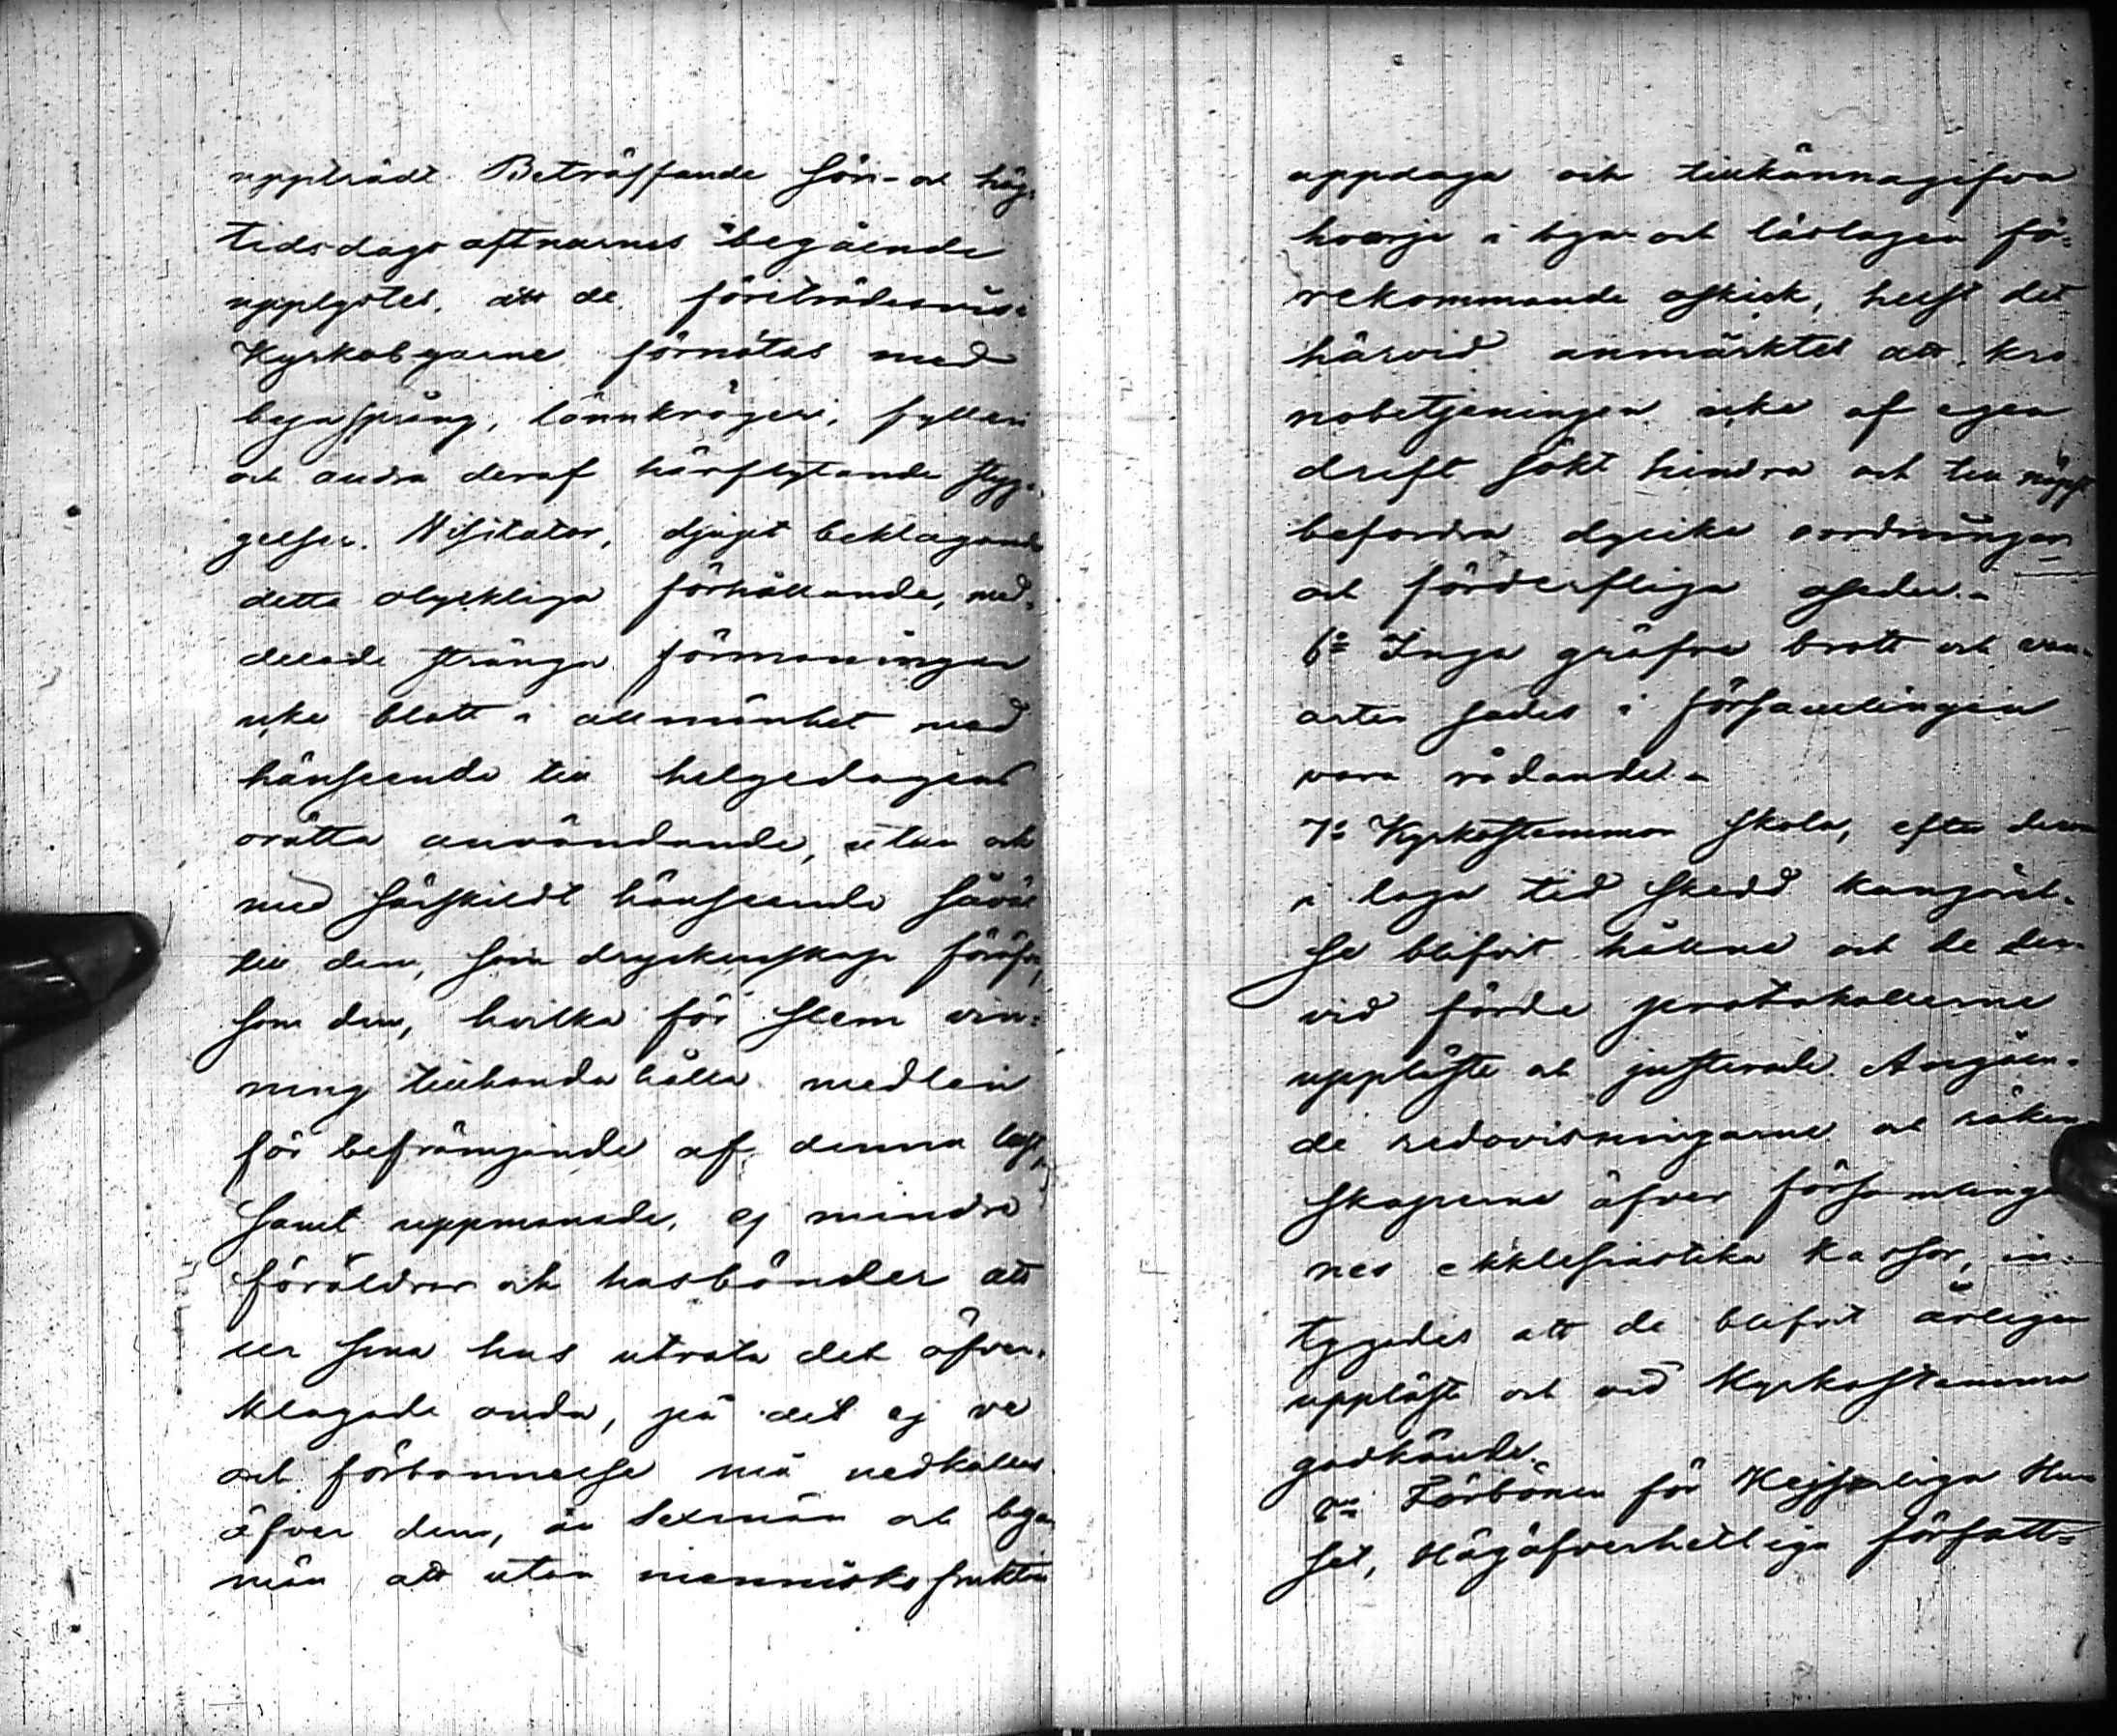 uppträdt. Beträffande sön- och hög-
tidsdagsaftnarnes begående
upplystes, att de företrädesvis i
Kyrkobyarne förnötas med
byaspring, lönnkrögeri, fylleri
och andra deraf härflytande styg-
gelser. Visitator, djupt beklagande
detta olyckliga förhållande, med-
delade stränga förmaningar
icke blott i allmänhet med
hänseende till helgedagens
orätta användande, utan och
med särskildt hänseende såväl
till dem, som dryckenskap föröfva,
som dem, hvilka för slem vin-
ning tillhandahålla medlen
för befrämjande af denna last,
samt uppmanade, ej mindre
föräldrar och husbönder att
ur sina hus utrota det öfver-
klagade onda, på det ej ve
och förbannelse må nedkallas
öfver dem, än Sexmän och bya-
män att utan menniskofruktan
uppdaga och tillkännagifva
hvarje i byar och låslagen fö-
rekommande oskick, helst det
härvid anmärktes att kro-
nobetjeningen icke af egen
drift sökt hindra och till näpst
befordra dylika oordningar
och förderfliga oseder.
6o Inga gröfre brott och van-
arter sades i församlingen
vara rådande.
7o Kyrkostämmor skola, efter derom
i laga tid skedd kungörel-
se blifvit hållne och de der-
vid förde protokollerne
uppläste och justerade. Angåen-
de redovisningarne och räken-
skaperne öfver församlinge-
nes ekklesiastika kassor, in-
tygades att de blifvit årligen
uppläste och vid Kyrkostämma
godkände.
8o Förbönen för Kejserliga Hu-
set, Högöfverhetliga författ-